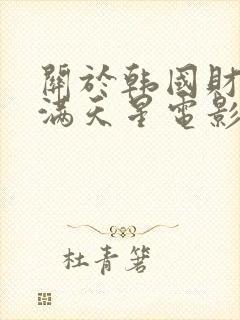 關於韩國财
滿天星電影
杜青箬